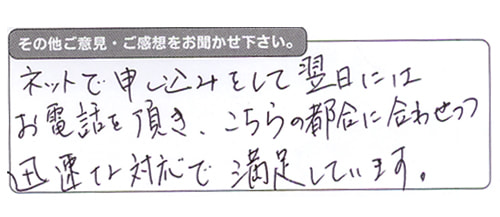 その他ご意見・ご感想をお聞かせ下さい。
ネットで申し込みをして翌日には
お電話を頂き、こちらの都合に合わせつつ
迅速な対応で満足しています。